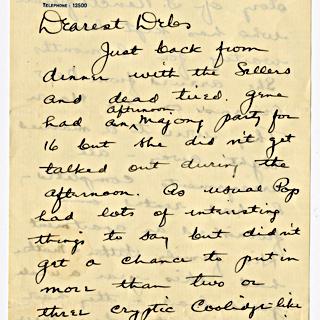 TELEPHONE: 12500
Dearest Debs
Just back from
dinner with the Sellers
and dead tired. Gene
had an afternoon Majong party for
16 but she didn't get
talked out during the
afternoon. As usual Pop
had lots of interesting
things to say but didn't
get a chance to put in
more than two or
three cryptic Coolidge-like